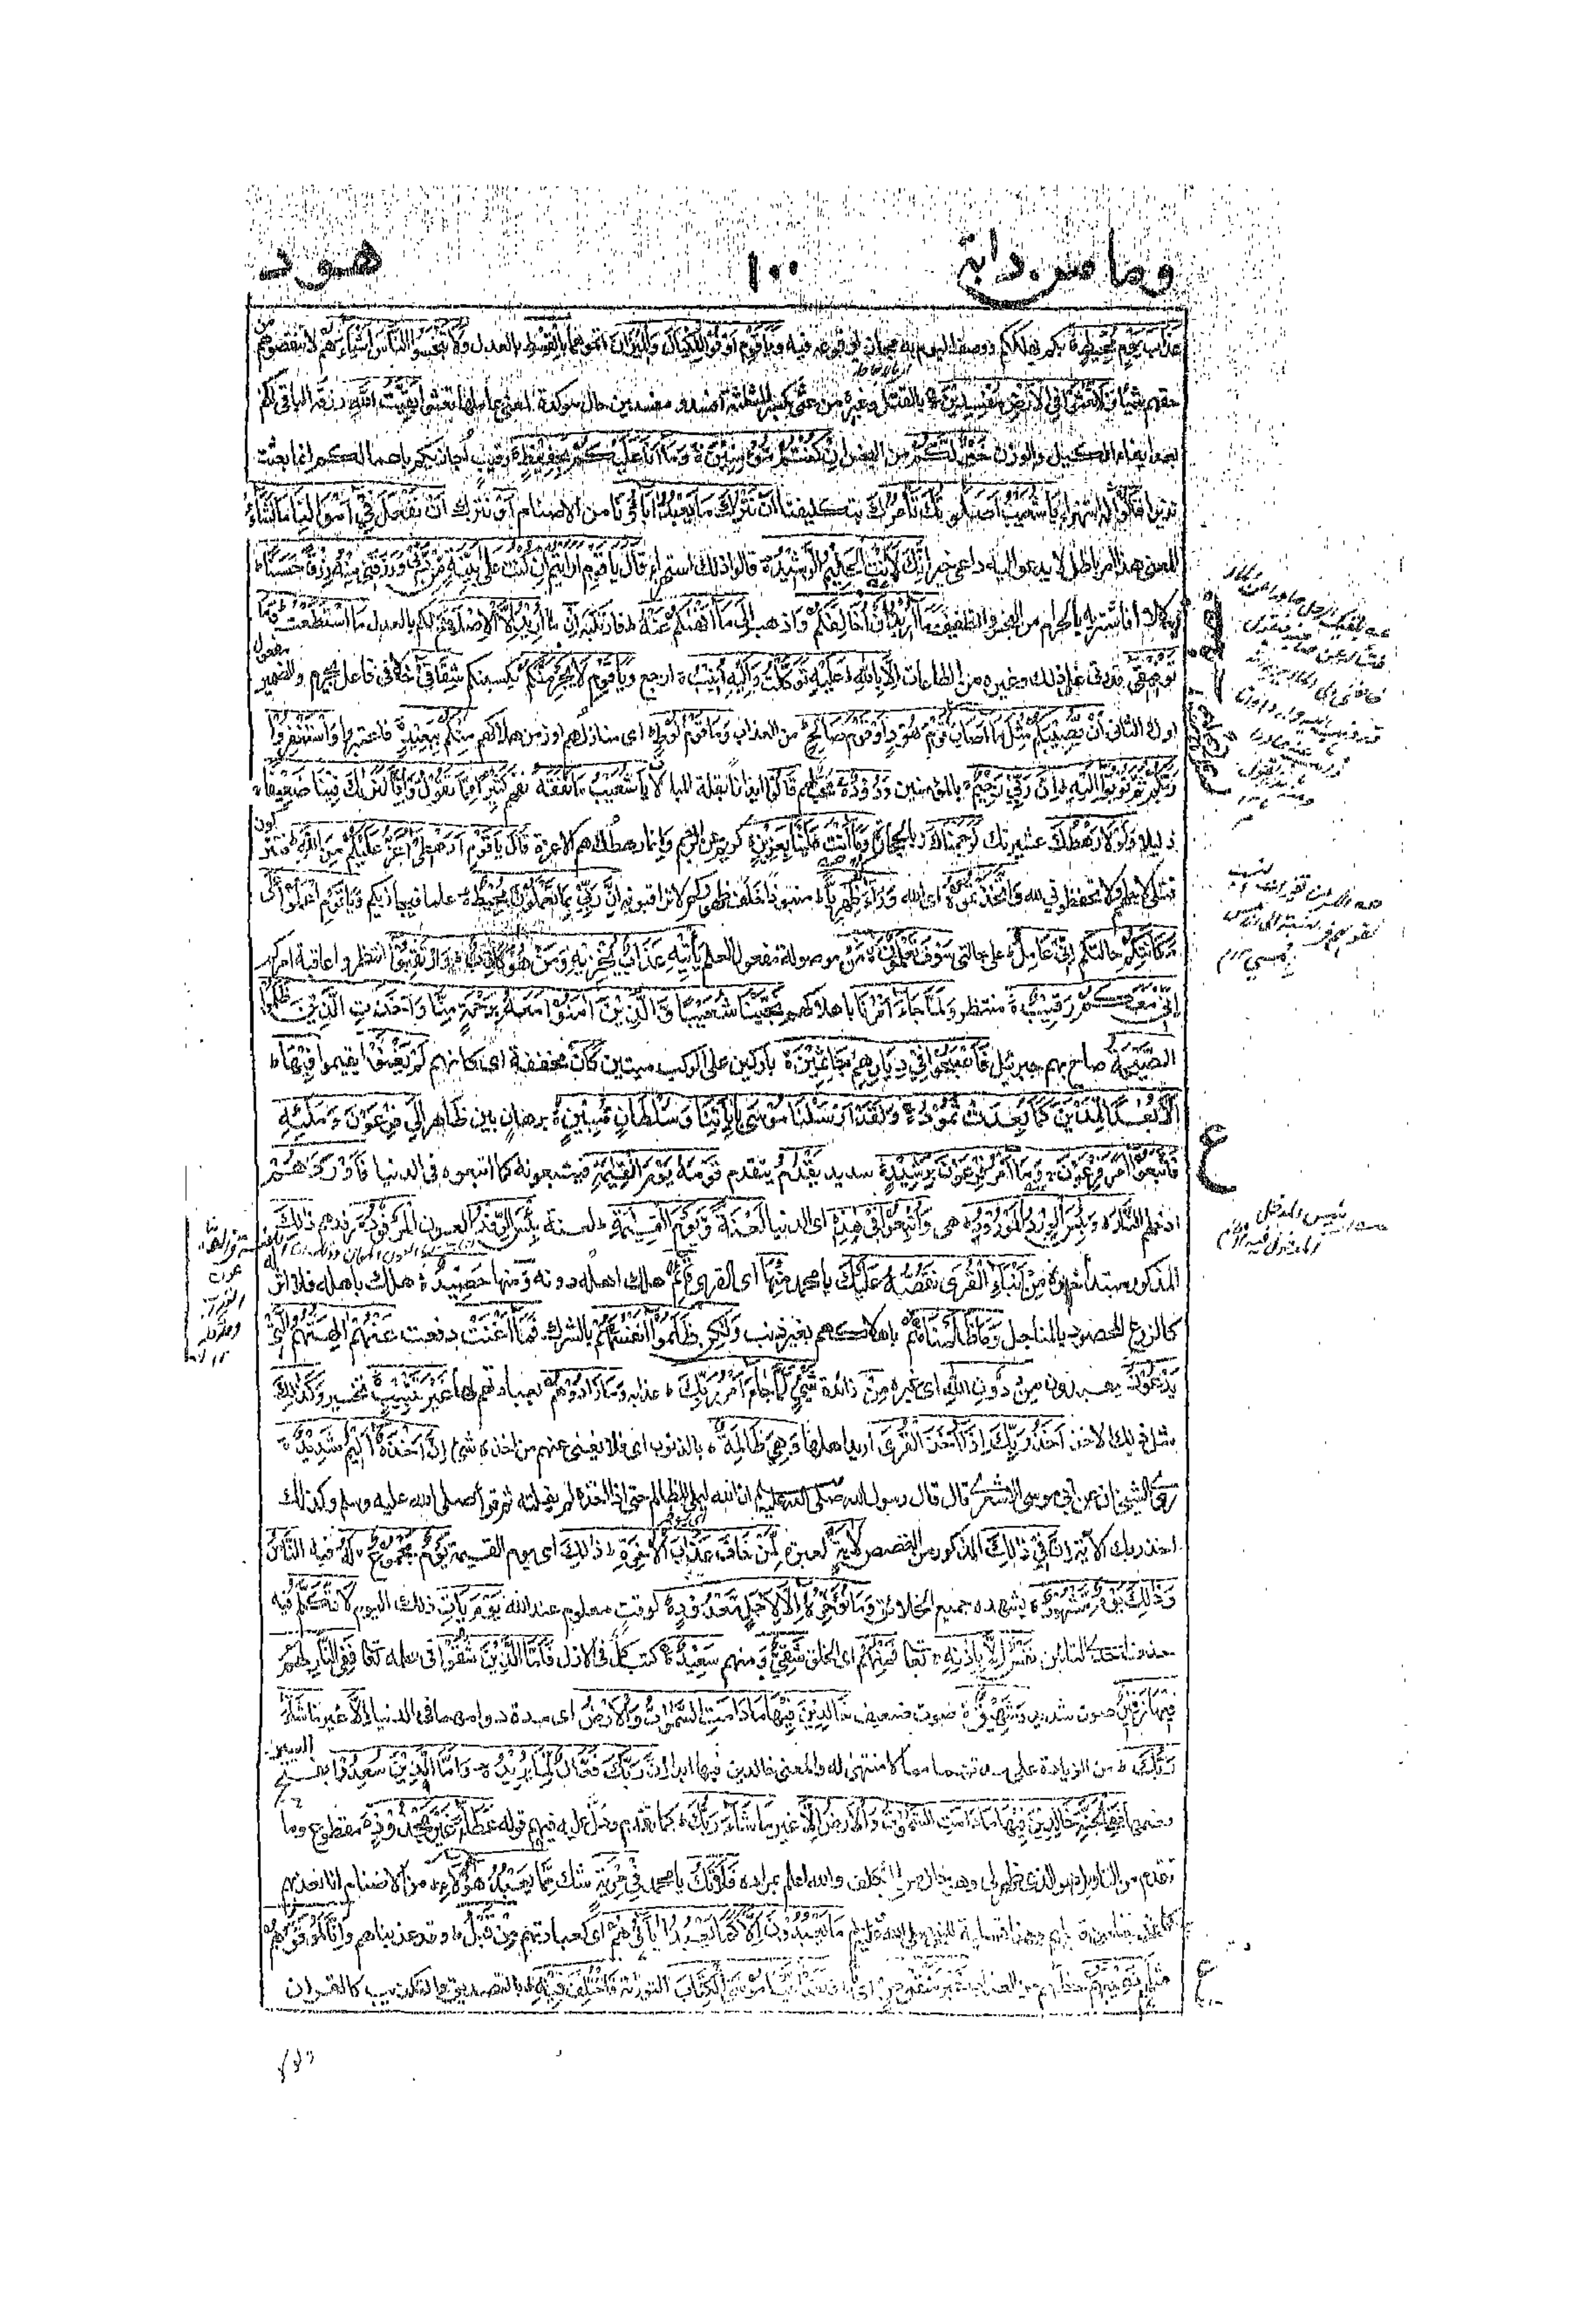 وما من دابة ١٠٠ هود
عَذَابَ يَوْمٍ مُّحِيْطٍ بكم يهلككم ووصف اليوم به مجاز لوقوعه فيه وَيَا قَوْمِ اَوْفُوا الْمِكْيَالَ وَالْمِيْزَانَ اتموهما بِالْقِسْطِ بالعدل وَلَا تَبْخَسُوا النَّاسَ اَشْيَاءَهُمْ لا تنقصوهم من
حقهم شيئا وَلَا تَعْثَوْا فِي الْاَرْضِ مُفْسِدِيْنَ بالقتل وغيره من عثى بكسر المثلثة افسد ومفسدين حال مؤكدة لمعنى عاملها تعثوا بَقِيَّتُ اللّٰهِ رزقه الباقى لكم
بعد ايفاء الكيل والوزن خَيْرٌ لَّكُمْ من البخس اِنْ كُنْتُمْ مُّؤْمِنِيْنَ وَمَا اَنَا عَلَيْكُمْ بِحَفِيْظٍ رقيب اجازيكم باعمالكم انما بعثت
نذيرا قَالُوْا له استهزاء يَا شُعَيْبُ اَصَلٰوتُكَ تَأْمُرُكَ بتكليفنا اَنْ نَّتْرُكَ مَا يَعْبُدُ اٰبَاؤُنَا من الاصنام اَوْ نترك اَنْ نَّفْعَلَ فِيْ اَمْوَالِنَا مَا نَشَاءُ
المعنى هذا امر باطل لا يدعو اليه داعى خير اِنَّكَ لَاَنْتَ الْحَلِيْمُ الرَّشِيْدُ قالوا ذلك استهزاء قَالَ يَا قَوْمِ اَرَاَيْتُمْ اِنْ كُنْتُ عَلٰى بَيِّنَةٍ مِّنْ رَّبِّيْ وَرَزَقَنِيْ مِنْهُ رِزْقًا حَسَنًا
حلالا افاشوبه بالحرام من البخس والتطفيف وَمَا اُرِيْدُ اَنْ اُخَالِفَكُمْ واذهب اِلٰى مَا اَنْهٰكُمْ عَنْهُ فارتكبه اِنْ ما اُرِيْدُ اِلَّا الْاِصْلَاحَ لكم بالعدل مَا اسْتَطَعْتُ وَمَا
تَوْفِيْقِيْ قدرتى على ذلك وغيره من الطاعات اِلَّا بِاللّٰهِ عَلَيْهِ تَوَكَّلْتُ وَاِلَيْهِ اُنِيْبُ ارجع وَيَا قَوْمِ لَا يَجْرِمَنَّكُمْ يكسبنكم شِقَاقِيْ خلافى فاعل يجرم والضمير مفعول
اول والثانى اَنْ يُّصِيْبَكُمْ مِّثْلُ مَا اَصَابَ قَوْمَ نُوْحٍ اَوْ قَوْمَ هُوْدٍ اَوْ قَوْمَ صَالِحٍ من العذاب وَمَا قَوْمُ لُوْطٍ اى منازلهم او زمن هلاكهم مِّنْكُمْ بِبَعِيْدٍ فاعتبروا وَاسْتَغْفِرُوْا
رَبَّكُمْ ثُمَّ تُوْبُوْا اِلَيْهِ اِنَّ رَبِّيْ رَحِيْمٌ بالمؤمنين وَّدُوْدٌ محب لهم قَالُوْا ايذانا بقلة المبالاة يَا شُعَيْبُ مَا نَفْقَهُ نفهم كَثِيْرًا مِّمَّا تَقُوْلُ وَاِنَّا لَنَرٰكَ فِيْنَا ضَعِيْفًا
ذليلا وَلَوْلَا رَهْطُكَ عشيرتك لَرَجَمْنٰكَ بالحجارة وَمَا اَنْتَ عَلَيْنَا بِعَزِيْزٍ كريم عن الرجم وانما رهطك هم الاعزة قَالَ يَا قَوْمِ اَرَهْطِيْ اَعَزُّ عَلَيْكُمْ مِّنَ اللّٰهِ فتتركون
قتلى لاجلهم ولا تحفظونى لله وَاتَّخَذْتُمُوْهُ اى الله وَرَاءَكُمْ ظِهْرِيًّا منبوذا خلف ظهوركم لا تراقبونه اِنَّ رَبِّيْ بِمَا تَعْمَلُوْنَ مُحِيْطٌ علما فيجازيكم وَيَا قَوْمِ اعْمَلُوْا عَلٰى
مَكَانَتِكُمْ حالتكم اِنِّيْ عَامِلٌ على حالتى سَوْفَ تَعْلَمُوْنَ مَنْ موصولة مفعول العلم يَّأْتِيْهِ عَذَابٌ يُّخْزِيْهِ وَمَنْ هُوَ كَاذِبٌ وَارْتَقِبُوْا انتظروا عاقبة امركم
اِنِّيْ مَعَكُمْ رَقِيْبٌ منتظر وَلَمَّا جَاءَ اَمْرُنَا باهلاكهم نَجَّيْنَا شُعَيْبًا وَّالَّذِيْنَ اٰمَنُوْا مَعَهٗ بِرَحْمَةٍ مِّنَّا وَاَخَذَتِ الَّذِيْنَ ظَلَمُوا
الصَّيْحَةُ صاح بهم جبرئيل فَاَصْبَحُوْا فِيْ دِيَارِهِمْ جَاثِمِيْنَ باركين على الركب ميتين كَاَنْ مخففة اى كانهم لَّمْ يَغْنَوْا يقيموا فِيْهَا
اَلَا بُعْدًا لِّمَدْيَنَ كَمَا بَعِدَتْ ثَمُوْدُ وَلَقَدْ اَرْسَلْنَا مُوْسٰى بِاٰيٰتِنَا وَسُلْطَانٍ مُّبِيْنٍ برهان بين ظاهر اِلٰى فِرْعَوْنَ وَمَلَئِهٖ
فَاتَّبَعُوْا اَمْرَ فِرْعَوْنَ وَمَا اَمْرُ فِرْعَوْنَ بِرَشِيْدٍ سديد يَقْدُمُ يتقدم قَوْمَهٗ يَوْمَ الْقِيٰمَةِ فيتبعونه كما اتبعوه فى الدنيا فَاَوْرَدَهُمْ
ادخلهم النَّارَ وَبِئْسَ الْوِرْدُ الْمَوْرُوْدُ هى وَاُتْبِعُوْا فِيْ هٰذِهٖ اى الدنيا لَعْنَةً وَّيَوْمَ الْقِيٰمَةِ لعنة بِئْسَ الرِّفْدُ العون الْمَرْفُوْدُ رفدهم ذٰلِكَ
المذكور مبتدأ خبره مِنْ اَنْبَاءِ الْقُرٰى نَقُصُّهٗ عَلَيْكَ يا محمد مِنْهَا اى القرى قَائِمٌ هلك اهله دونه وَمنها حَصِيْدٌ هلك باهله فلا اثر له
كالزرع المحصود بالمناجل وَمَا ظَلَمْنٰهُمْ باهلاكهم بغير ذنب وَلٰكِنْ ظَلَمُوْا اَنْفُسَهُمْ بالشرك فَمَا اَغْنَتْ دفعت عَنْهُمْ اٰلِهَتُهُمُ الَّتِيْ
يَدْعُوْنَ يعبدون مِنْ دُوْنِ اللّٰهِ اى غيره مِنْ زائدة شَيْءٍ لَّمَّا جَاءَ اَمْرُ رَبِّكَ عذابه وَمَا زَادُوْهُمْ بعبادتهم لها غَيْرَ تَتْبِيْبٍ تخسير وَكَذٰلِكَ
مثل ذلك الاخذ اَخْذُ رَبِّكَ اِذَا اَخَذَ الْقُرٰى اريد اهلها وَهِيَ ظَالِمَةٌ بالذنوب اى فلا يغنى عنهم من اخذه شئ اِنَّ اَخْذَهٗ اَلِيْمٌ شَدِيْدٌ
روى الشيخان عن ابى موسى الاشعرى قال قال رسول الله صلى الله عليه وسلم ان الله ليملى للظالم حتى اذا اخذه لم يفلته ثم قرأ صلى الله عليه وسلم وكذلك
اخذ ربك الآية اِنَّ فِيْ ذٰلِكَ المذكور من القصص لَاٰيَةً لعبرة لِّمَنْ خَافَ عَذَابَ الْاٰخِرَةِ ذٰلِكَ اى يوم القيمة يَوْمٌ مَّجْمُوْعٌ لَّهُ فيه النَّاسُ
وَذٰلِكَ يَوْمٌ مَّشْهُوْدٌ يشهده جميع الخلائق وَمَا نُؤَخِّرُهٗ اِلَّا لِاَجَلٍ مَّعْدُوْدٍ لوقت معلوم عند الله يَوْمَ يَأْتِ ذلك اليوم لَا تَكَلَّمُ فيه
حذف احدى التائين نَفْسٌ اِلَّا بِاِذْنِهٖ تعالى فَمِنْهُمْ اى الخلق شَقِيٌّ وَّمنهم سَعِيْدٌ كتب كل فى الازل فَاَمَّا الَّذِيْنَ شَقُوْا فى علمه تعالى فَفِي النَّارِ لَهُمْ
فِيْهَا زَفِيْرٌ صوت شديد وَّشَهِيْقٌ صوت ضعيف خَالِدِيْنَ فِيْهَا مَا دَامَتِ السَّمٰوٰتُ وَالْاَرْضُ اى مدة دوامهما فى الدنيا اِلَّا غير مَا شَاءَ
رَبُّكَ من الزيادة على مدتهما مما لا منتهى له والمعنى خالدين فيها ابدا اِنَّ رَبَّكَ فَعَّالٌ لِّمَا يُرِيْدُ وَاَمَّا الَّذِيْنَ سُعِدُوْا بفتح السين
وضمها فَفِي الْجَنَّةِ خَالِدِيْنَ فِيْهَا مَا دَامَتِ السَّمٰوٰتُ وَالْاَرْضُ اِلَّا غير مَا شَاءَ رَبُّكَ كما تقدم ودل عليه فيهم قوله عَطَاءً غَيْرَ مَجْذُوْذٍ مقطوع وما
تقدم من التاويل هو الذى ظهر لى وهو خال من التكلف والله اعلم بمراده فَلَا تَكُ يا محمد فِيْ مِرْيَةٍ شك مِّمَّا يَعْبُدُ هٰؤُلَاءِ من الاصنام انا نعذبهم
كما عذبنا من قبلهم وهذا تسلية للنبى صلى الله عليه وسلم مَا يَعْبُدُوْنَ اِلَّا كَمَا يَعْبُدُ اٰبَاؤُهُمْ اى كعبادتهم مِّنْ قَبْلُ وقد عذبناهم وَاِنَّا لَمُوَفُّوْهُمْ
مثلهم نَصِيْبَهُمْ حظهم من العذاب غَيْرَ مَنْقُوْصٍ اى تاما وَلَقَدْ اٰتَيْنَا مُوْسَى الْكِتَابَ التورٰة فَاخْتُلِفَ فِيْهِ بالتصديق والتكذيب كالقرآن